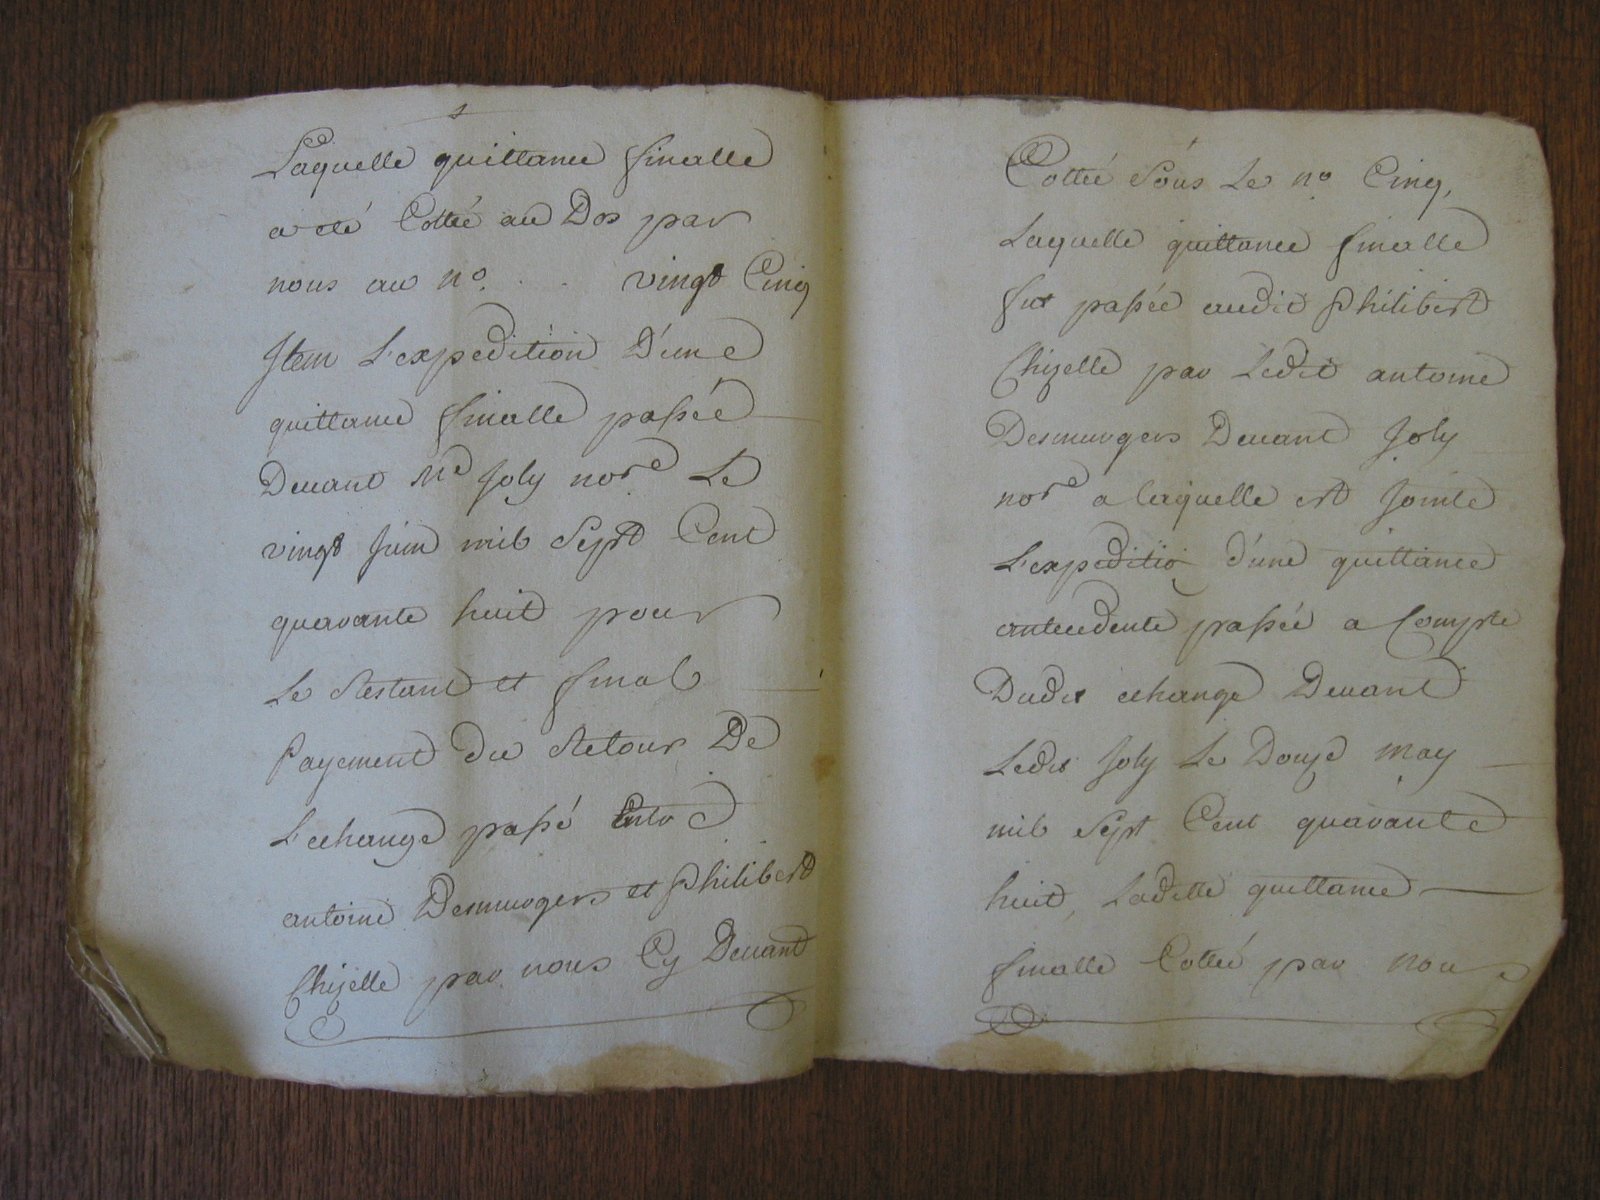 Laquelle quittance finalle
a eté Cottée au Dos par
nous au n.º . . vingt Cinq
Item L'expedition D'une
quittance finalle passée
Devant Me Joly nore Le
vingt Juin mil Sept Cent
quarante huit pour
Le Restant et final
Payement du Retour De
L'echange passé Entre
antoine Desmurgers et Philibert
Chizelle par nous Cy Devant
Cottée Sous Le nº Cinq,
Laquelle quittance finalle
fut passée audit Philibert
Chizelle par Ledit antoine
Desmurgers Devant Joly
nore a laquelle est Jointe
L'expeditio d'une quittance
antecedente passée a Compte
Dudit echange Devant
Ledit Joly Le Douze may
mil Sept Cent quarante
huit, Laditte quittance
finalle Cottée par nous